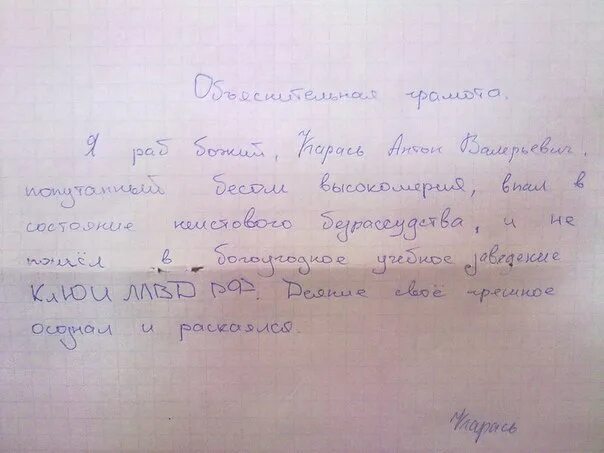 Объяснительная грамота.
Я раб божий, Карась Антон Валерьевич,
попутанный бесом высокомерия, впал в
состояние неистового безрассудства, и не
пошёл в богоугодное учебное заведение
КЛЮИ МВД РФ. Деяние своё грешное
осознал и раскаялся.
Карась